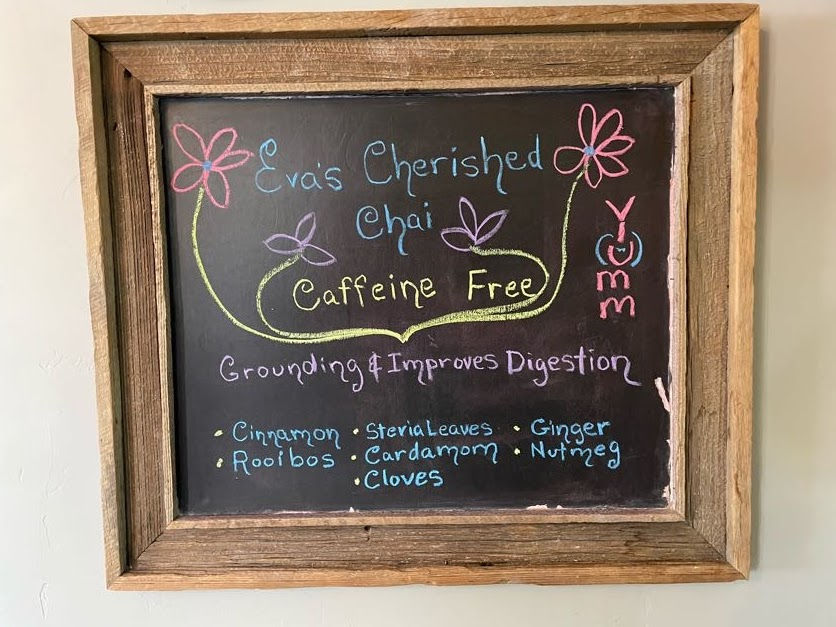 Eva's Cherished
Chai
Caffeine Free
Yumm
Grounding & Improves Digestion
• Cinnamon • Stevia Leaves • Ginger
• Rooibos • Cardamom • Nutmeg
• Cloves